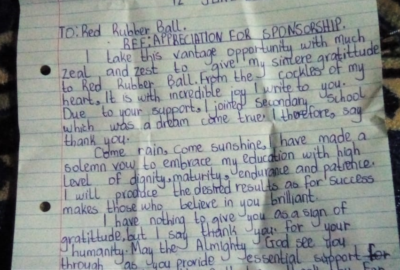 TO: Red Rubber Ball.
REF: APPRECIATION FOR SPONSORSHIP.
I take this vantage opportunity with much
zeal and zest to give my sincere gratitude
to Red Rubber Ball. From the cockles of my
heart, It is with incredible joy I write to you.
Due to your support, I joined Secondary School
which was a dream come true. I therefore, say
thank you.
Come rain, come sunshine, I have made a
solemn vow to embrace my education with high
level of dignity, maturity, endurance and patience.
I will produce the desired results as for success
makes those who believe in you brilliant.
I have nothing to give you as a sign of
gratitude, but I say thank you for your
humanity. May the Almighty God see you
through as you provide essential support for